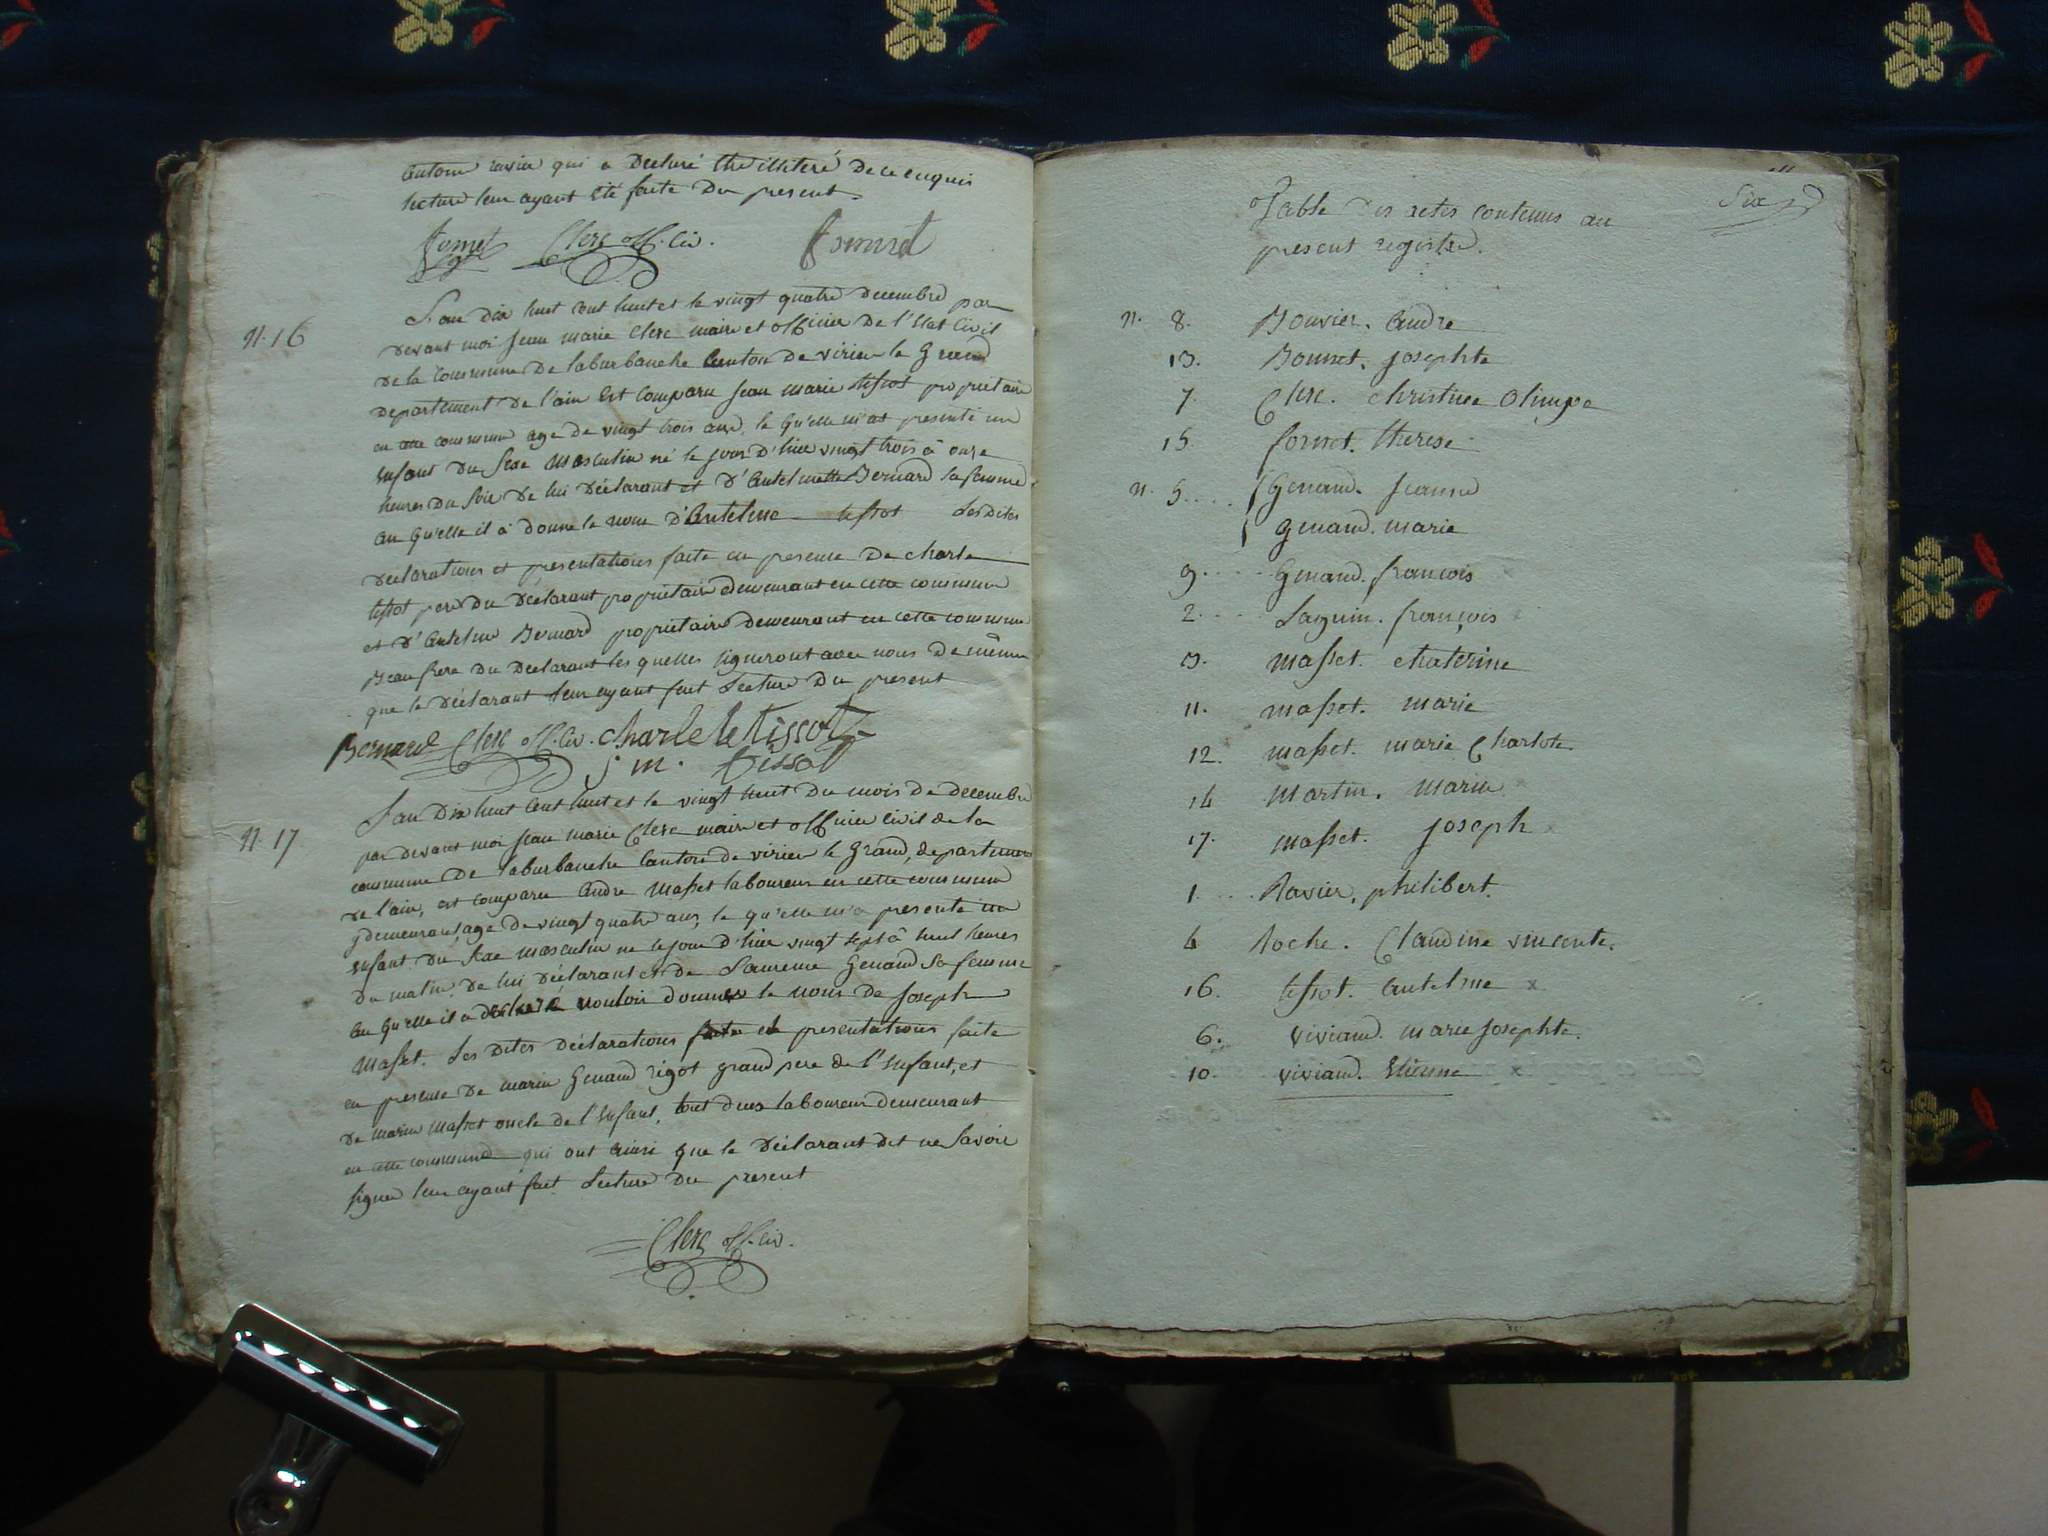 antoine ravier qui a Declaré être illiteré de ce enquis
lecture leur ayant été faite du present
fornet Clerc off. civ. bonnet
N. 16
L'an dix huit cent huit et le vingt quatre decembre par
devant moi jean marie Clerc maire et officier de l'Etat Civil
de la Commune de laburbanche Canton de virieu le Grand
departement de l'ain est comparu jean marie tissot propriétaire
en cette commune age de vingt trois ans, le qu'elle m'at presenté un
enfant du sexe masculin né le jour d'hier vingt trois à onze
heures du soir de lui déclarant et d'Antelmette Bernard sa femme
au qu'elle il à donné le nom d'Antelme tissot Les dites
déclarations et presentations faite en presence de charle
tissot pere du déclarant propriétaire demeurant en cette commune
et d'Antelme Bernard propriétaire demeurant en cette commune
Beau frere du Declarant les quelles signeront avec nous de même
que le déclarant leur ayant fait Lecture du present
Bernard Clerc off. civ. charle tissot
j. m. tissot
N. 17
L'an dix huit cent huit et le vingt huit du mois de decembre
par devant moi jean marie Clerc maire et officier civil de la
commune de laburbanche Canton de virieu le Grand, departement
de l'ain, est comparu Andre Masset laboureur en cette commune
y demeurant age de vingt quatre ans, le qu'elle m'a presenté un
enfant du sexe masculin ne le jour d'hier vingt sept à huit heures
du matin de lui déclarant et de Laurence Genand sa femme
au qu'elle il a déclaré vouloir donner le nom de joseph
Masset. Les dites déclarations faite et presentations faite
en presence de marin Genand rigot grand pere de l'enfant, et
de marin Masset oncle de l'enfant, tout deux laboureur demeurant
en cette commune qui ont ainsi que le déclarant dit ne savoir
signer leur ayant fait Lecture du present
Clerc off. civ.
Six
Table des actes contenus au
present registre.
n. 8. Bouvier. Andre
13. Bonnet. josephte
7. Clerc. christine Olimpe
15. fornet. therese
n. 5... Genand. jeanne
Genand. marie
9.... Genand. francois x
2.... Laguin. françois x
3. masset. chaterine
11. masset. marie
12. masset. marie Charlote
14 martin. marie
17. masset. joseph x
1.... Ravier. philibert.
4 roche. Claudine vincente.
16. tissot. antelme x
6. viviand. marie josephte.
10. viviand. Etienne x